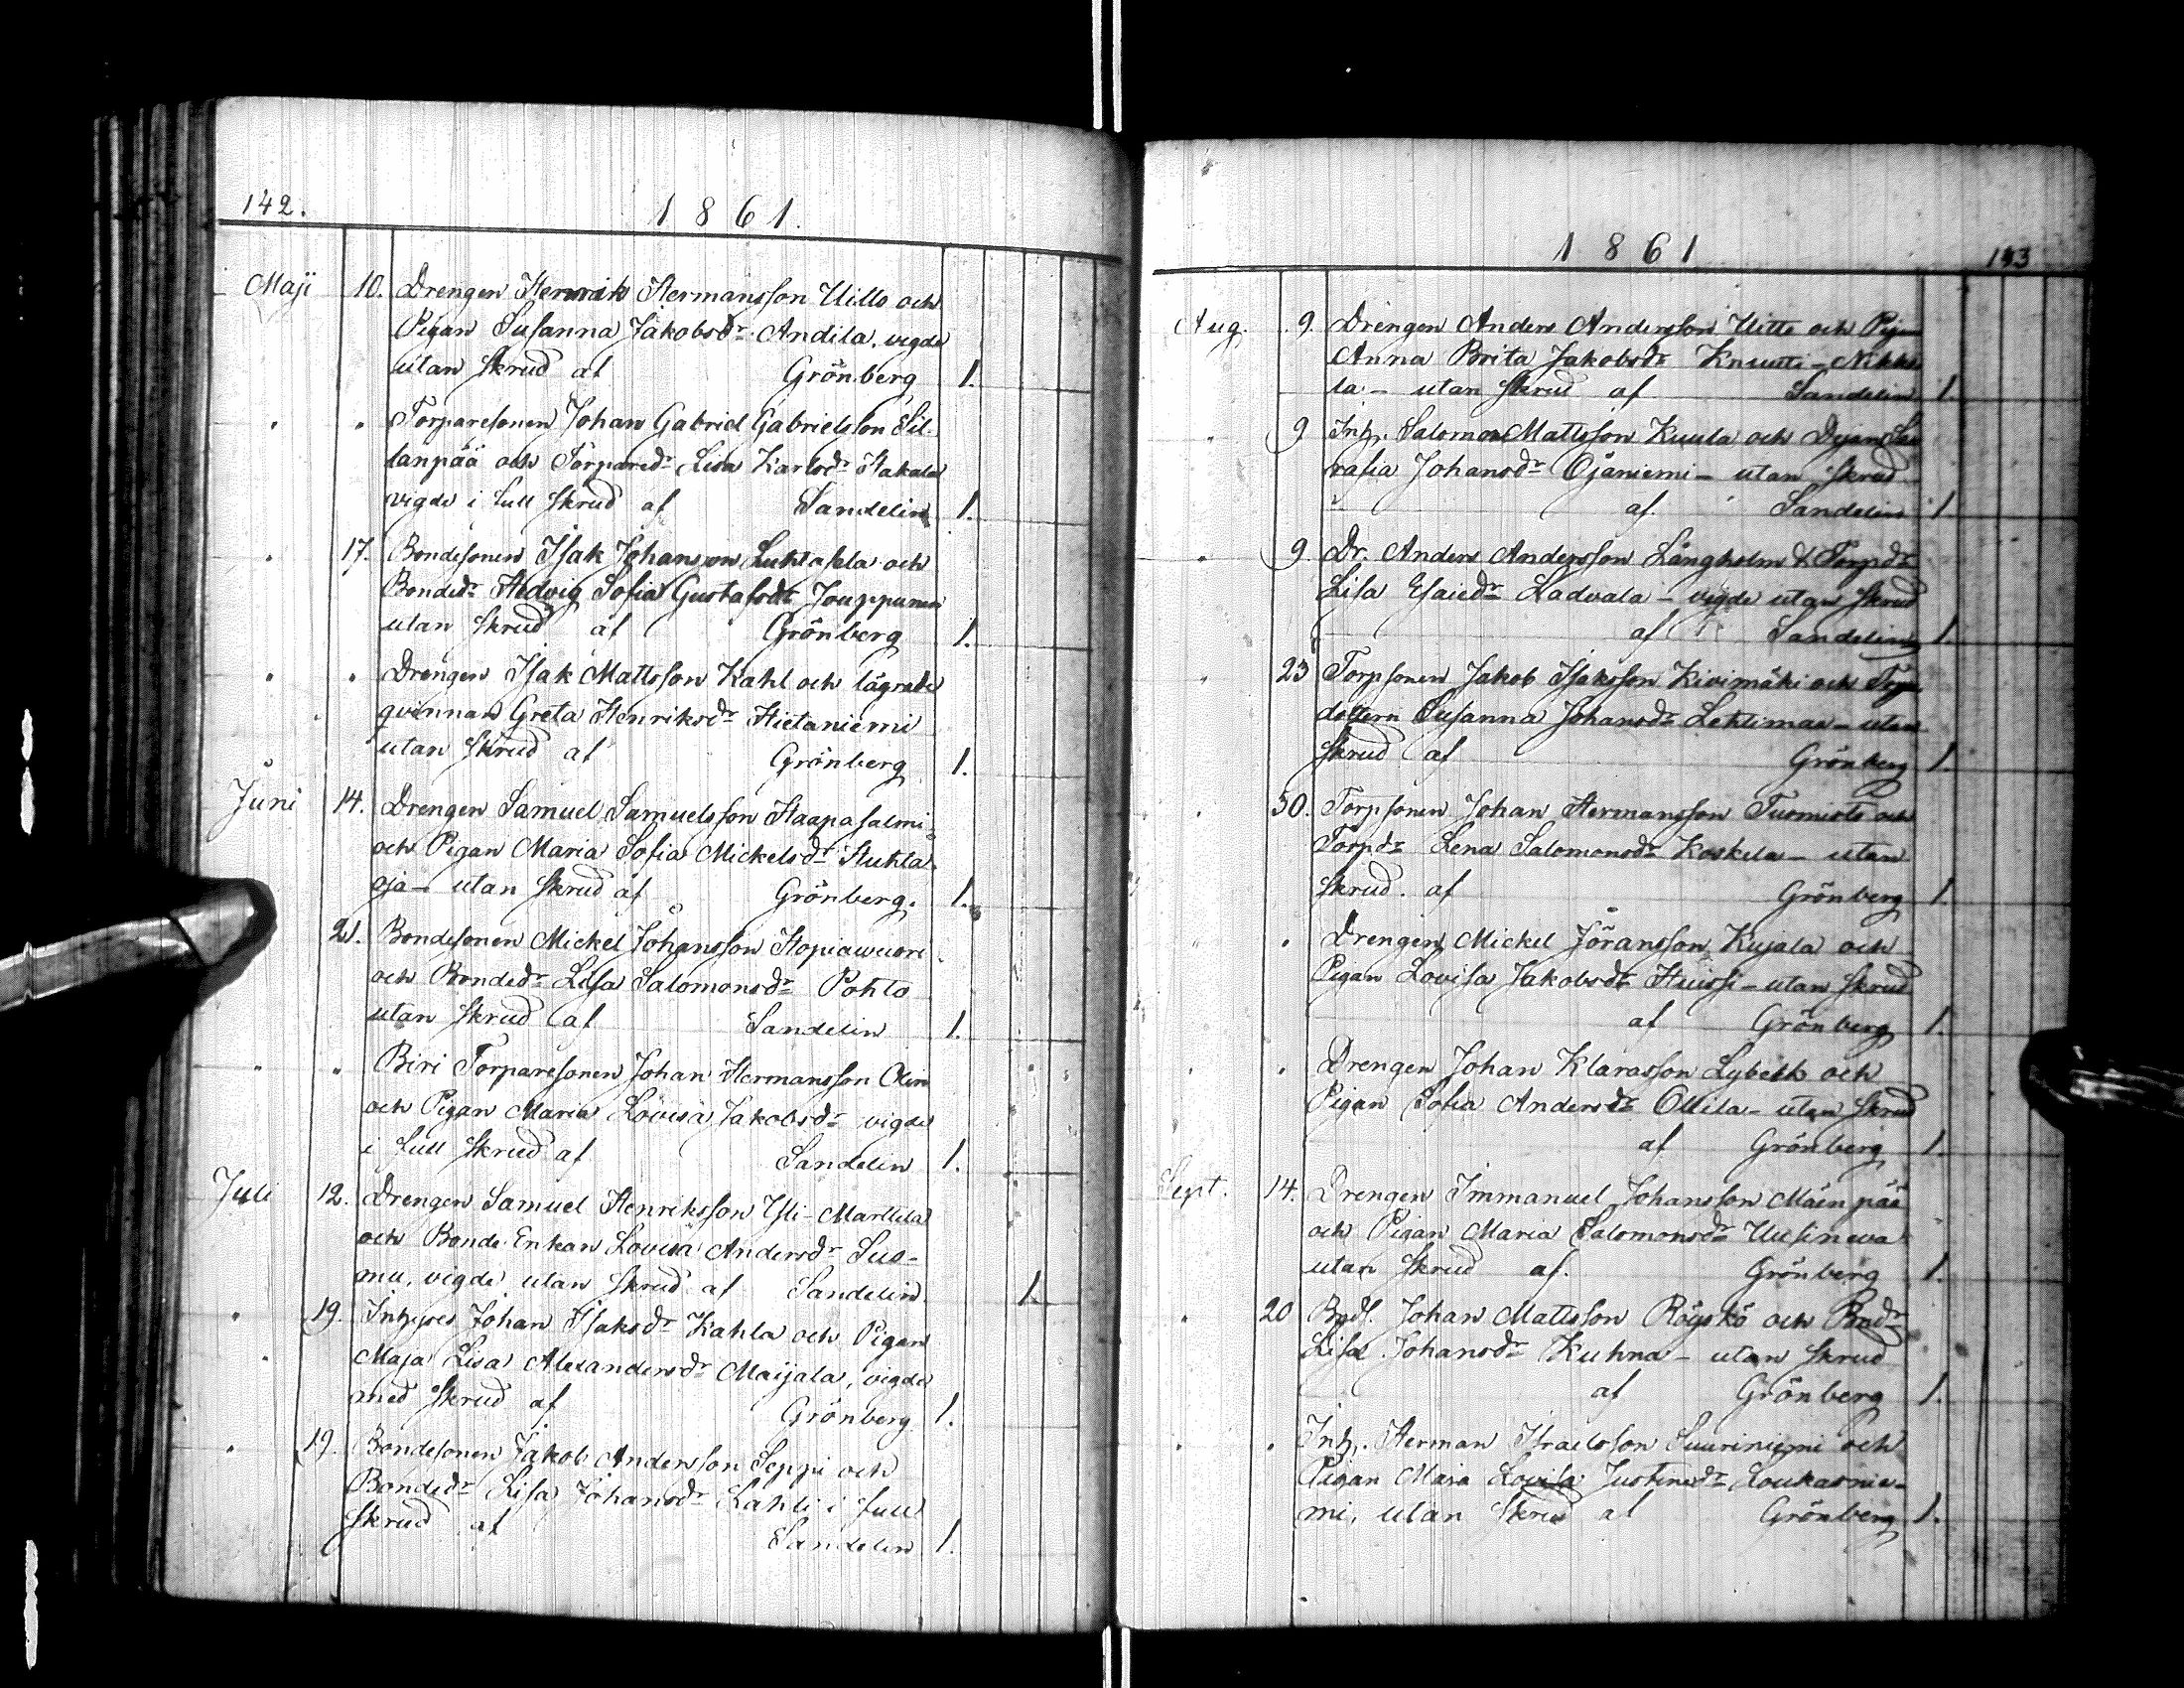 142.
1861.
Maji 10. Drengen Henrik Hermansson Uitto och
Pigan Susanna Jakobsdr Andila, vigde
utan skrud af Grönberg 1.
" " Torparesonen Johan Gabriel Gabrielsson Sil-
lanpää och Torparedr Lisa Karlsdr Hakala
vigde i full skrud af Sandelin 1.
" 17. Bondesonen Isak Johansson Luhtasela och
Bondedr Hedvig Sofia Gustafsdr Jouppunen
utan skrud af Grönberg 1.
" " Drengen Isak Mattsson Kahl och lägrade
qvinnan Greta Henriksdr Hietaniemi
utan skrud af Grönberg 1.
Juni 14. Drengen Samuel Samuelsson Haapasalmi
och Pigan Maria Sofia Mickelsdr Huhta-
oja – utan skrud af Grönberg. 1.
21. Bondesonen Mickel Johansson Hopiawuori
och Bondedr Lisa Salomonsdr Pohto
utan skrud af Sandelin 1.
" " Biri Torparesonen Johan Hermansson Olin
och Pigan Maria Lovisa Jakobsdr vigde
i full skrud af Sandelin 1.
Juli 12. Drengen Samuel Henriksson Yli-Marttila
och Bonde Enkan Lovisa Andersdr Luo-
mu, vigde utan skrud af Sandelin 1.
" 19. Inhyses Johan Isaksdr Kahla och Pigan
Maja Lisa Alexandersdr Maijala, vigde
med skrud af Grönberg 1.
" 19. Bondesonen Jakob Andersson Seppi och
Bondedr Lisa Johansdr Lahti i full
skrud af Sandelin 1.
1861
143
Aug. 9. Drengen Anders Andersson Uitto och Pigan
Anna Brita Jakobsdr Knuutti-Nikko-
la – utan skrud af Sandelin 1.
" 9 Inh. Salomon Mattsson Kuula och
rafia Johansdr Ojaniemi – utan skrud
af Sandelin 1
" 9 Dr. Anders Andersson Långholm & Torpdr
Lisa Esaiedr Ladvala – vigde utan skrud
af Sandelin 1.
" 23 Torpsonen Jakob Isaksson Kivimäki och Torp-
dottern Susanna Johansdr Lehtimaa – utan
skrud af Grönberg 1.
" 30. Torpsonen Johan Hermansson Tuomisto och
Torpdr Lena Salomonsdr Koskela – utan
skrud. af Grönberg 1.
" " Drengen Mickel Jöransson Kujala och
Pigan Lovisa Jakobsdr Huissi – utan skrud
af Grönberg 1.
" " Drengen Johan Klarasson Lybeck och
Pigan Sofia Andersdr Ollila – utan skrud
af Grönberg 1.
Sept. 14. Drengen Immanuel Johansson Mäenpää
och Pigan Maria Salomonsdr Uusineva
utan skrud af. Grönberg 1.
" 20 BndS. Johan Mattsson Röyskö och Bndr
Lisa Johansdr Kuhna – utan skrud
af Grönberg 1.
" " Inh. Herman Israelsson Suuriniemi och
Pigan Maja Lovisa Justinsdr Loukasnie-
mi, utan skrud af Grönberg 1.